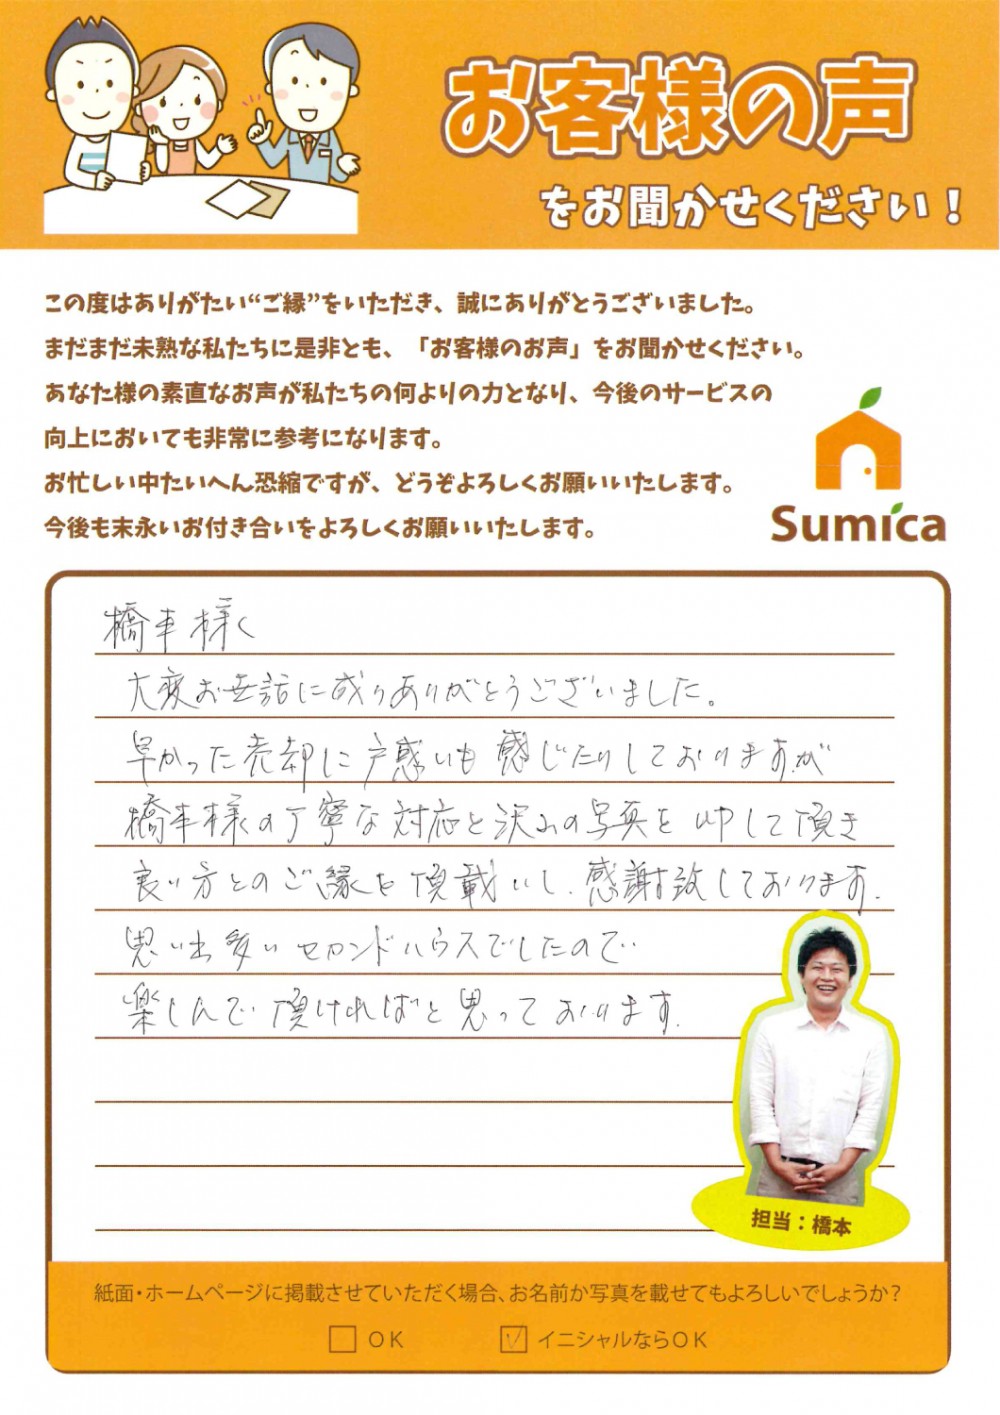 お客様の声
をお聞かせください！
この度はありがたい“ご縁”をいただき、誠にありがとうございました。
まだまだ未熟な私たちに是非とも、「お客様のお声」をお聞かせください。
あなた様の素直なお声が私たちの何よりの力となり、今後のサービスの
向上においても非常に参考になります。
お忙しい中たいへん恐縮ですが、どうぞよろしくお願いいたします。
今後も末永いお付き合いをよろしくお願いいたします。
Sumica
橋本様
大変お世話に成りありがとうございました。
早かった売却に戸惑いも感じたりしておりますが
橋本様の丁寧な対応と沢山の写真を して頂き
良い方とのご縁を頂戴いし、感謝致しております。
思い出多いセカンドハウスでしたので
楽しんで頂ければと思っております。
担当：橋本
紙面・ホームページに掲載させていただく場合、お名前か写真を載せてもよろしいでしょうか？
OK
イニシャルならOK